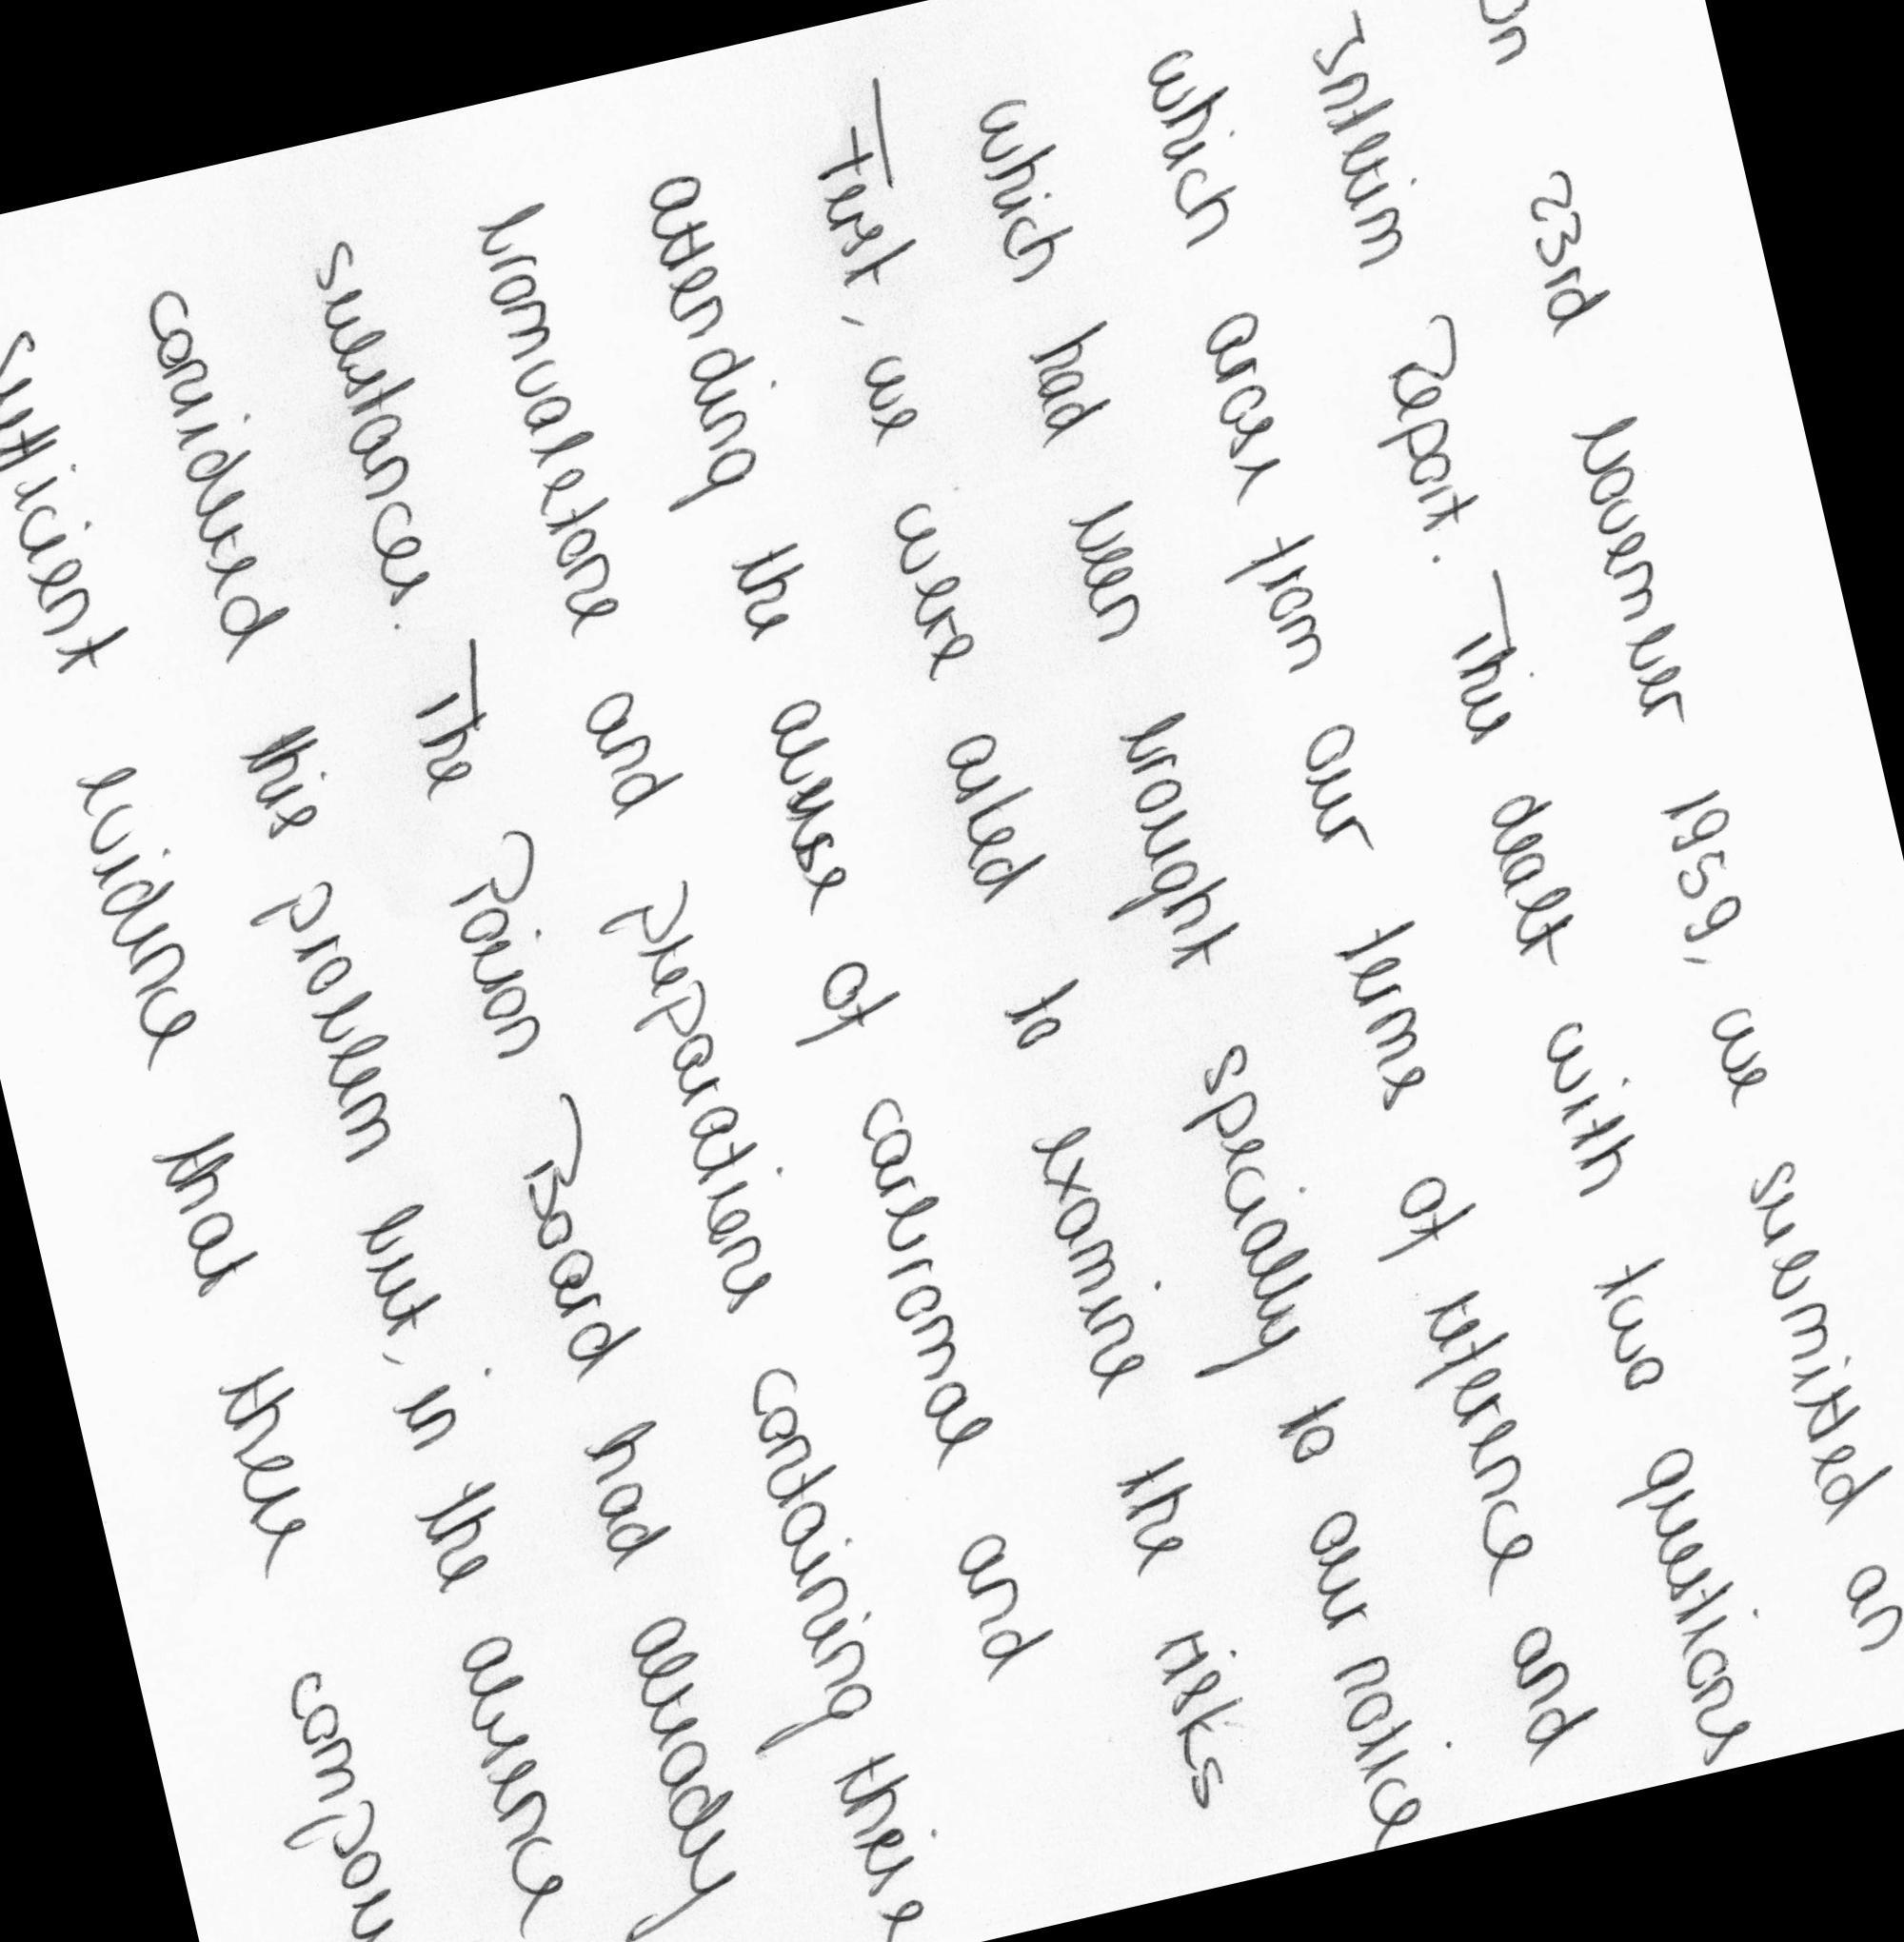 On 23rd November 1959, we submitted an
Interim Report. This dealt with two questions
which arose from our terms of reference and
which had been brought specially to our notice
First, we were asked to examine the risks
attending the abuse of carbromal and
bromvaletone and preparations containing these
substances. The Poison Board had already
considered this problem but, in the absence
sufficient evidence that these compou